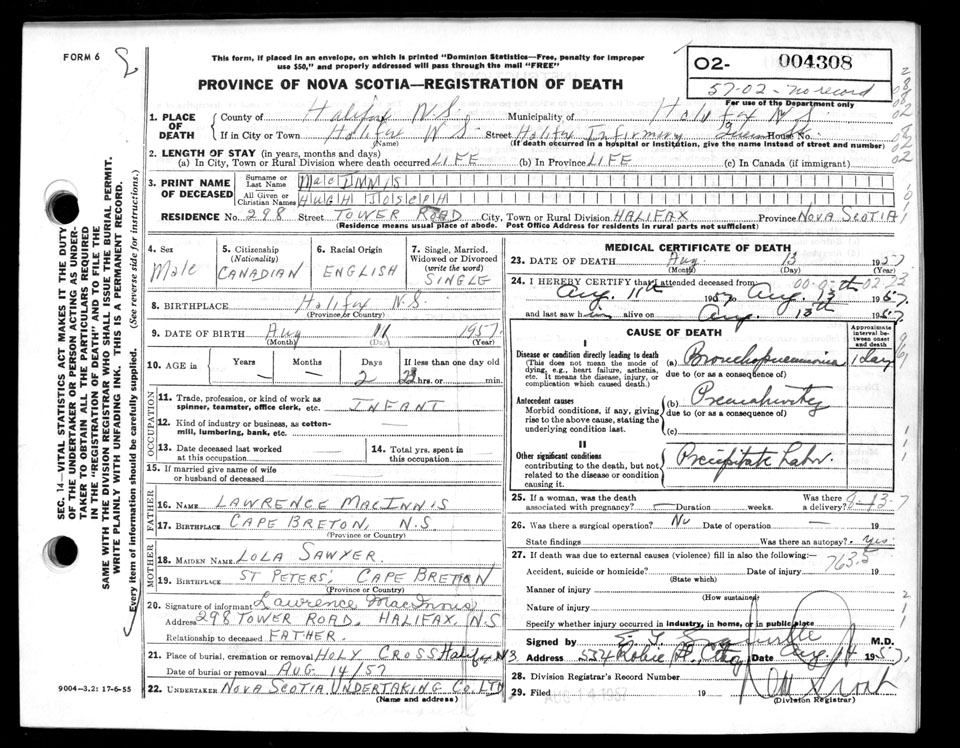 FORM 6
This form, if placed in an envelope, on which is printed "Dominion Statistics—Free, penalty for improper
use $50," and properly addressed will pass through the mail "FREE"
PROVINCE OF NOVA SCOTIA—REGISTRATION OF DEATH
02- 004308
57-02 - no record
For use of the Department only
1. PLACE OF DEATH
County of Halifax N.S. Municipality of Halifax N.S.
If in City or Town Halifax N.S. Street Halifax Infirmary House No.
(Name) (If death occurred in a hospital or institution, give the name instead of street and number)
2. LENGTH OF STAY (in years, months and days)
(a) In City, Town or Rural Division where death occurred LIFE (b) In Province LIFE (c) In Canada (if immigrant)
3. PRINT NAME OF DECEASED
Surname or Last Name MacINNIS
All Given or Christian Names HUGH JOSEPH
RESIDENCE No. 298 Street TOWER ROAD City, Town or Rural Division HALIFAX Province NOVA SCOTIA
(Residence means usual place of abode. Post Office Address for residents in rural parts not sufficient)
4. Sex Male
5. Citizenship (Nationality) CANADIAN
6. Racial Origin ENGLISH
7. Single, Married, Widowed or Divorced (write the word) SINGLE
8. BIRTHPLACE Halifax N.S.
(Province or Country)
9. DATE OF BIRTH Aug 11 1957
(Month) (Day) (Year)
10. AGE in Years — Months — Days 2 If less than one day old hrs. or min.
OCCUPATION
11. Trade, profession or kind of work as
spinner, teamster, office clerk, etc. INFANT
12. Kind of industry or business, as cotton-
mill, lumbering, bank, etc.
13. Date deceased last worked
at this occupation
14. Total yrs. spent in
this occupation
15. If married give name of wife
or husband of deceased
FATHER
16. NAME LAWRENCE MACINNIS
17. BIRTHPLACE CAPE BRETON, N.S
(Province or Country)
MOTHER
18. MAIDEN NAME LOLA SAWYER
19. BIRTHPLACE ST PETERS', CAPE BRETON
(Province or Country)
20. Signature of informant Lawrence MacInnis
Address 298 TOWER ROAD, HALIFAX, N.S
Relationship to deceased FATHER.
21. Place of burial, cremation or removal HOLY CROSS Halifax NS
Date of burial or removal AUG 14/57
22. UNDERTAKER NOVA SCOTIA UNDERTAKING CO. LTD
(Name and address)
9004-3.2: 17-6-55
MEDICAL CERTIFICATE OF DEATH
23. DATE OF DEATH Aug 13 1957
(Month) (Day) (Year)
24. I HEREBY CERTIFY that I attended deceased from
Aug. 11th 1957 to Aug. 13th 1957
and last saw him alive on Aug. 13th 1957
CAUSE OF DEATH
Approximate interval between onset and death
I
Disease or condition directly leading to death
(This does not mean the mode of
dying, e.g., heart failure, asthenia,
etc. It means the disease, injury, or
complication which caused death.)
(a) Bronchopneumonia 1 day
due to (or as a consequence of)
Antecedent causes
Morbid conditions, if any, giving
rise to the above cause, stating the
underlying condition last.
(b) Prematurity
due to (or as a consequence of)
(c)
II
Other significant conditions
contributing to the death, but not
related to the disease or condition
causing it.
Precipitate Labor.
25. If a woman, was the death
associated with pregnancy? Duration weeks.
Was there a delivery?
26. Was there a surgical operation? No Date of operation — 19
State findings Was there an autopsy? Yes
27. If death was due to external causes (violence) fill in also the following:—
763.5
Accident, suicide or homicide? Date of injury 19
(State which)
Manner of injury
(How sustained)
Nature of injury
Specify whether injury occurred in industry, in home, or in public place
Signed by M.D.
Address 534 Robie St. City Date Aug 14 1957
28. Division Registrar's Record Number
29. Filed AUG 14 1957 19
(Division Registrar)
SEC. 14—VITAL STATISTICS ACT MAKES IT THE DUTY
OF THE UNDERTAKER OR PERSON ACTING AS UNDER-
TAKER TO OBTAIN ALL THE PARTICULARS REQUIRED
IN THE "REGISTRATION OF DEATH" AND TO FILE THE
SAME WITH THE DIVISION REGISTRAR WHO SHALL ISSUE THE BURIAL PERMIT.
WRITE PLAINLY WITH UNFADING INK. THIS IS A PERMANENT RECORD.
Every item of information should be carefully supplied. (See reverse side for instructions.)